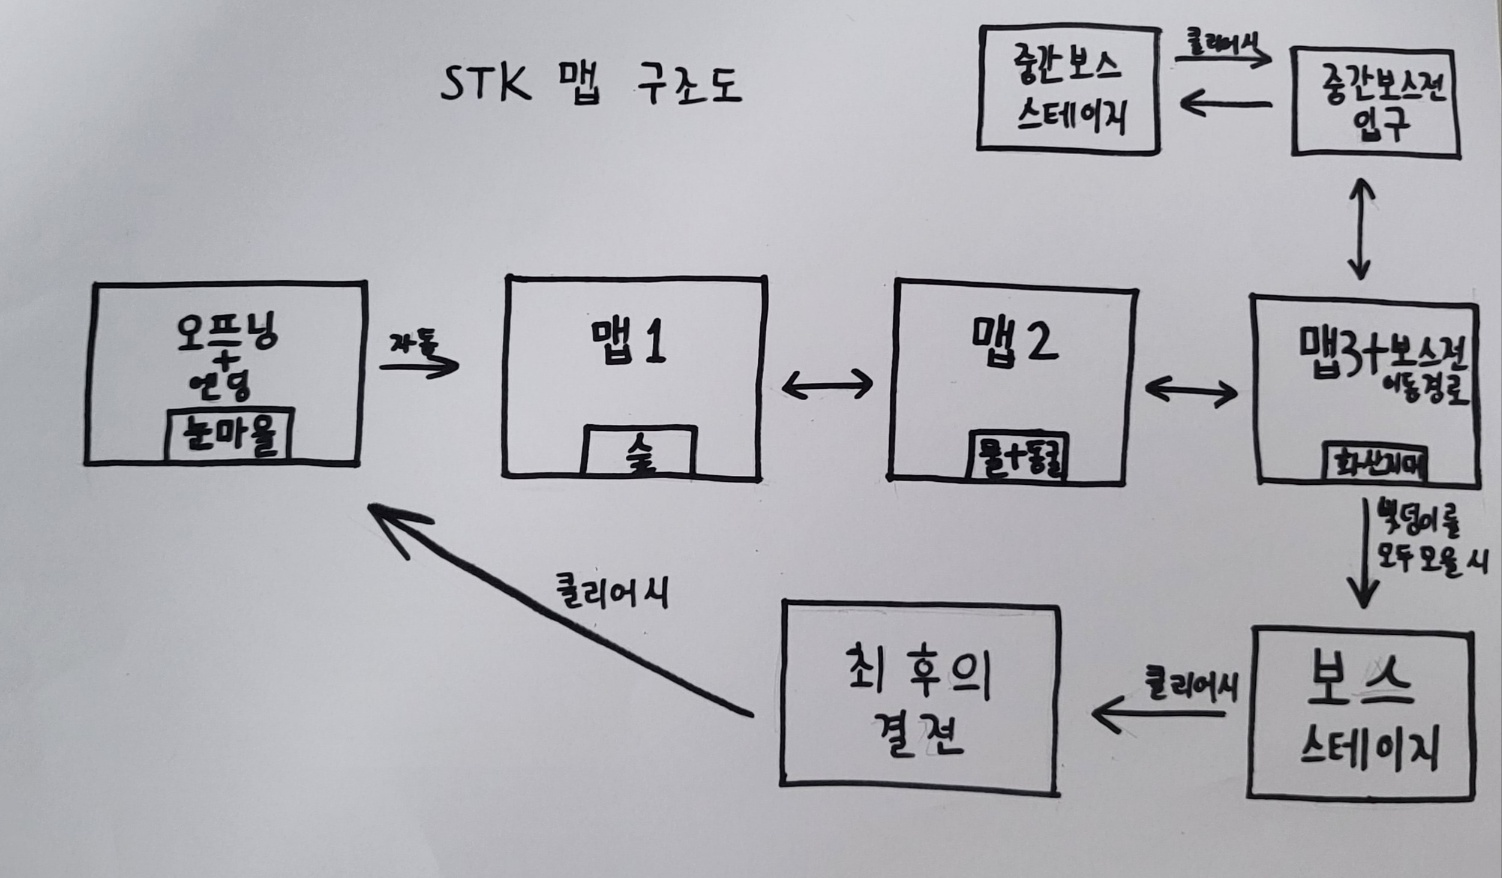 STK 맵 구조도
중간보스
스테이지
클리어시
중간보스전
입구
오프닝
+
엔딩
눈마을
자동
맵1
숲
맵2
물+동굴
맵3+보스전
이동경로
화산지대
빛덩이를
모두 모을 시
클리어시
최후의
결전
클리어시
보스
스테이지